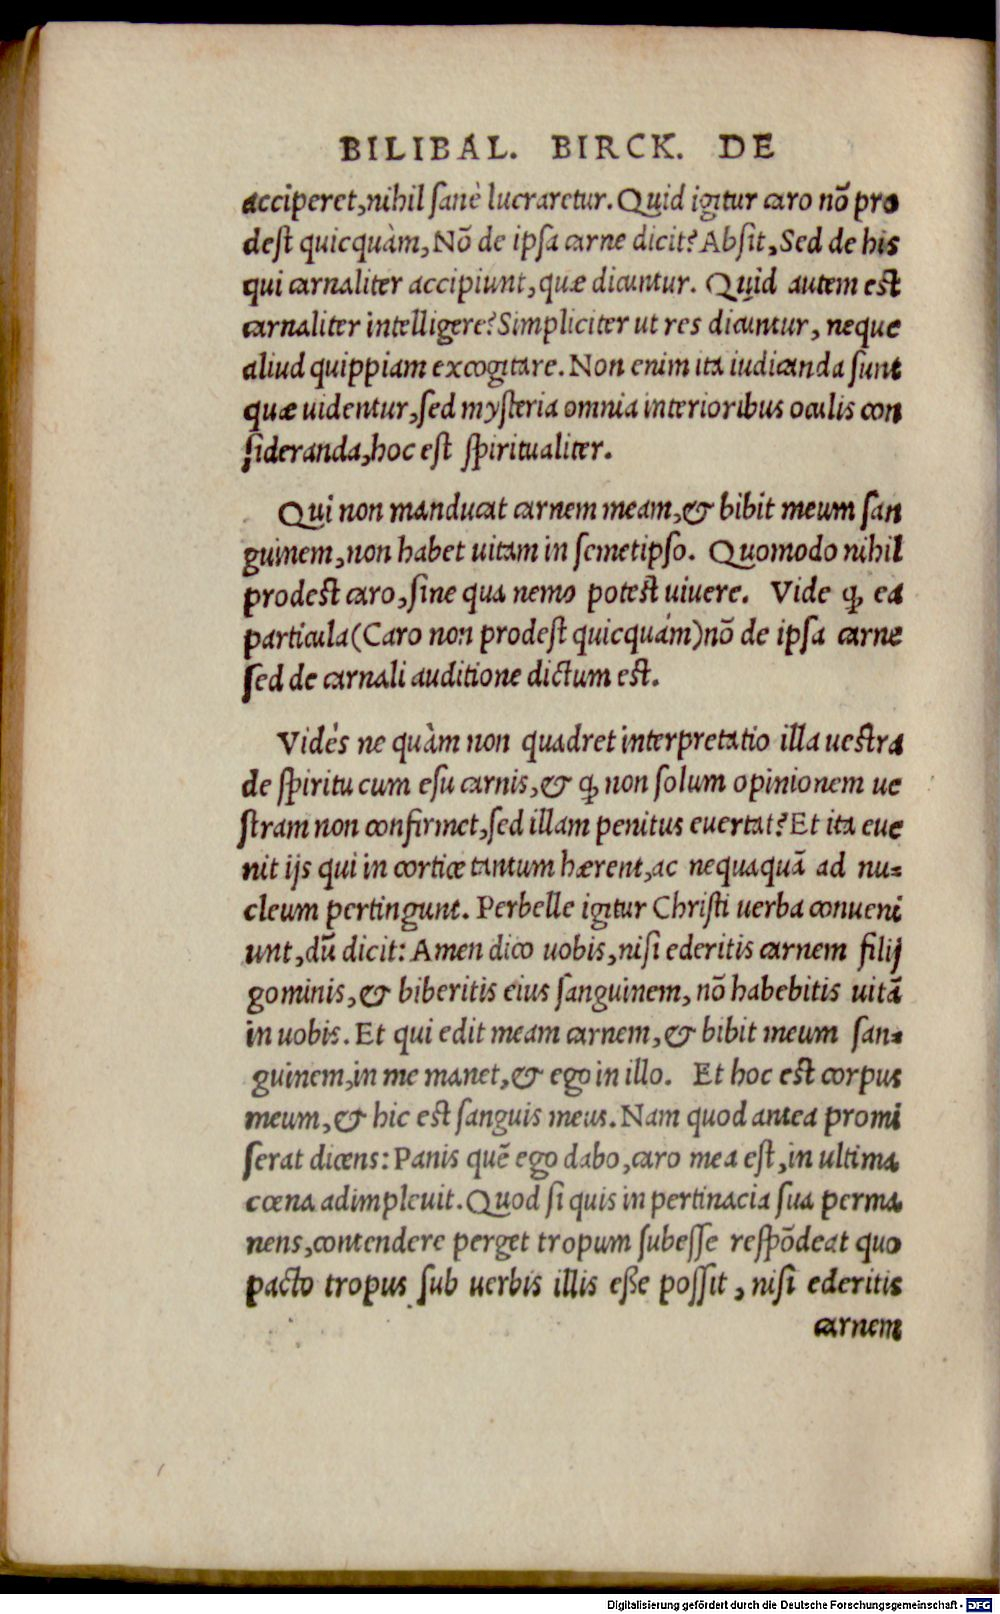 BILIBAL. BIRCK. DE
acciperet, nihil sanè lucraretur. Quid igitur caro nõ pro
dest quicquàm, Nõ de ipsa carne dicit? Absit, Sed de his
qui carnaliter accipiunt, quæ dicuntur. Quid autem est
carnaliter intelligere? Simpliciter ut res dicuntur, neque
aliud quippiam excogitare. Non enim ita iudicanda sunt
quæ uidentur, sed mysteria omnia interioribus oculis con
sideranda, hoc est spiritualiter.
Qui non manducat carnem meam, & bibit meum san
guinem, non habet uitam in semetipso. Quomodo nihil
prodest caro, sine qua nemo potest uiuere. Vide ꝙ ea
particula (Caro non prodest quicquám) nõ de ipsa carne
sed de carnali auditione dictum est.
Vidès ne quàm non quadret interpretatio illa uestra
de spiritu cum esu carnis, & ꝙ non solum opinionem ue
stram non confirmet, sed illam penitus euertat? Et ita eue
nit ijs qui in cortice tantum hærent, ac nequaquã ad nu=
cleum pertingunt. Perbelle igitur Christi uerba conueni
unt, dũ dicit: Amen dico uobis, nisi ederitis carnem filij
gominis, & biberitis eius sanguinem, nõ habebitis uitã
in uobis. Et qui edit meam carnem, & bibit meum san=
guinem, in me manet, & ego in illo. Et hoc est corpus
meum, & hic est sanguis meus. Nam quod antea promi
serat dicens: Panis quẽ ego dabo, caro mea est, in ultima
cœna adimpleuit. Quod si quis in pertinacia sua perma
nens, contendere perget tropum subesse respõdeat quo
pacto tropus sub uerbis illis eße possit, nisi ederitis
carnem
Digitalisierung gefördert durch die Deutsche Forschungsgemeinschaft - DFG